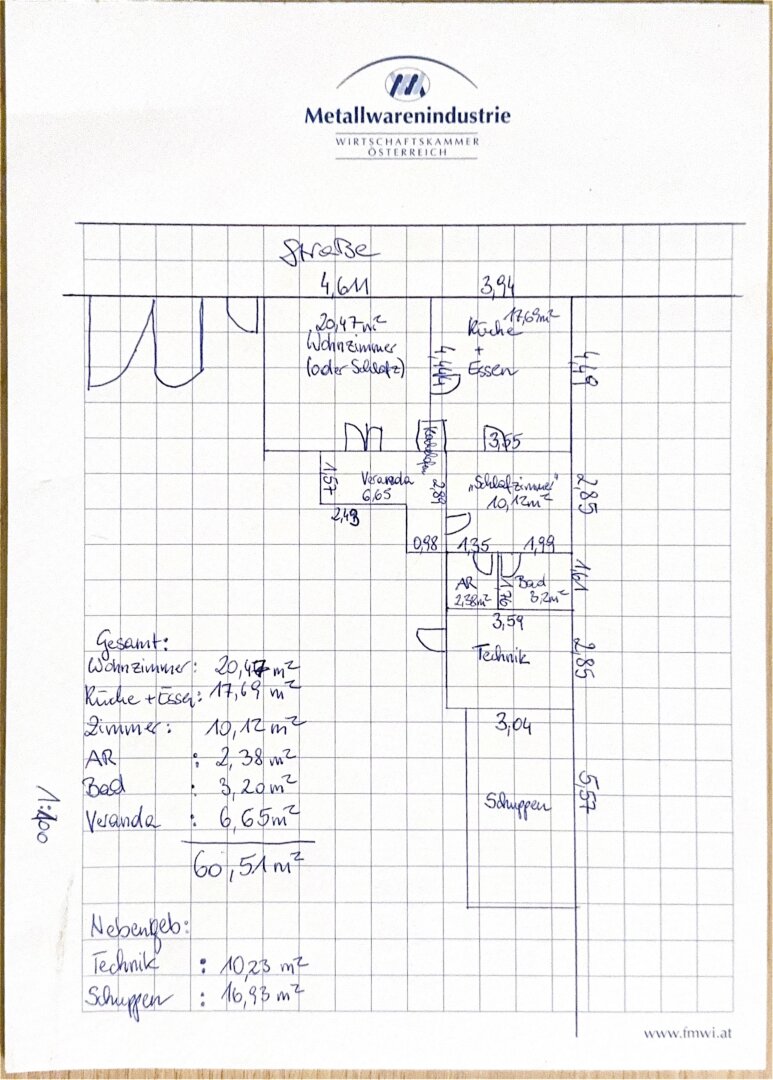 Metallwarenindustrie
WIRTSCHAFTSKAMMER
ÖSTERREICH
Straße
4,611
3,94
20,47 m²
Wohnzimmer
(oder Schlafz)
17,69 m²
Küche
+
Essen
4,444
4,49
3,55
1,57
Veranda
6,65
2,89
„Schlafzimmer"
10,12 m²
2,85
2,43
0,98
1,35
1,99
AR
2,38 m²
1,76
Bad
3,2 m²
1,61
3,59
Technik
2,85
3,04
Schuppen
5,57
Gesamt:
Wohnzimmer: 20,47 m²
Küche + Essen: 17,69 m²
Zimmer: 10,12 m²
AR : 2,38 m²
Bad : 3,20 m²
Veranda : 6,65 m²
60,51 m²
1:100
Nebengeb:
Technik : 10,23 m²
Schuppen : 16,93 m²
www.fmwi.at